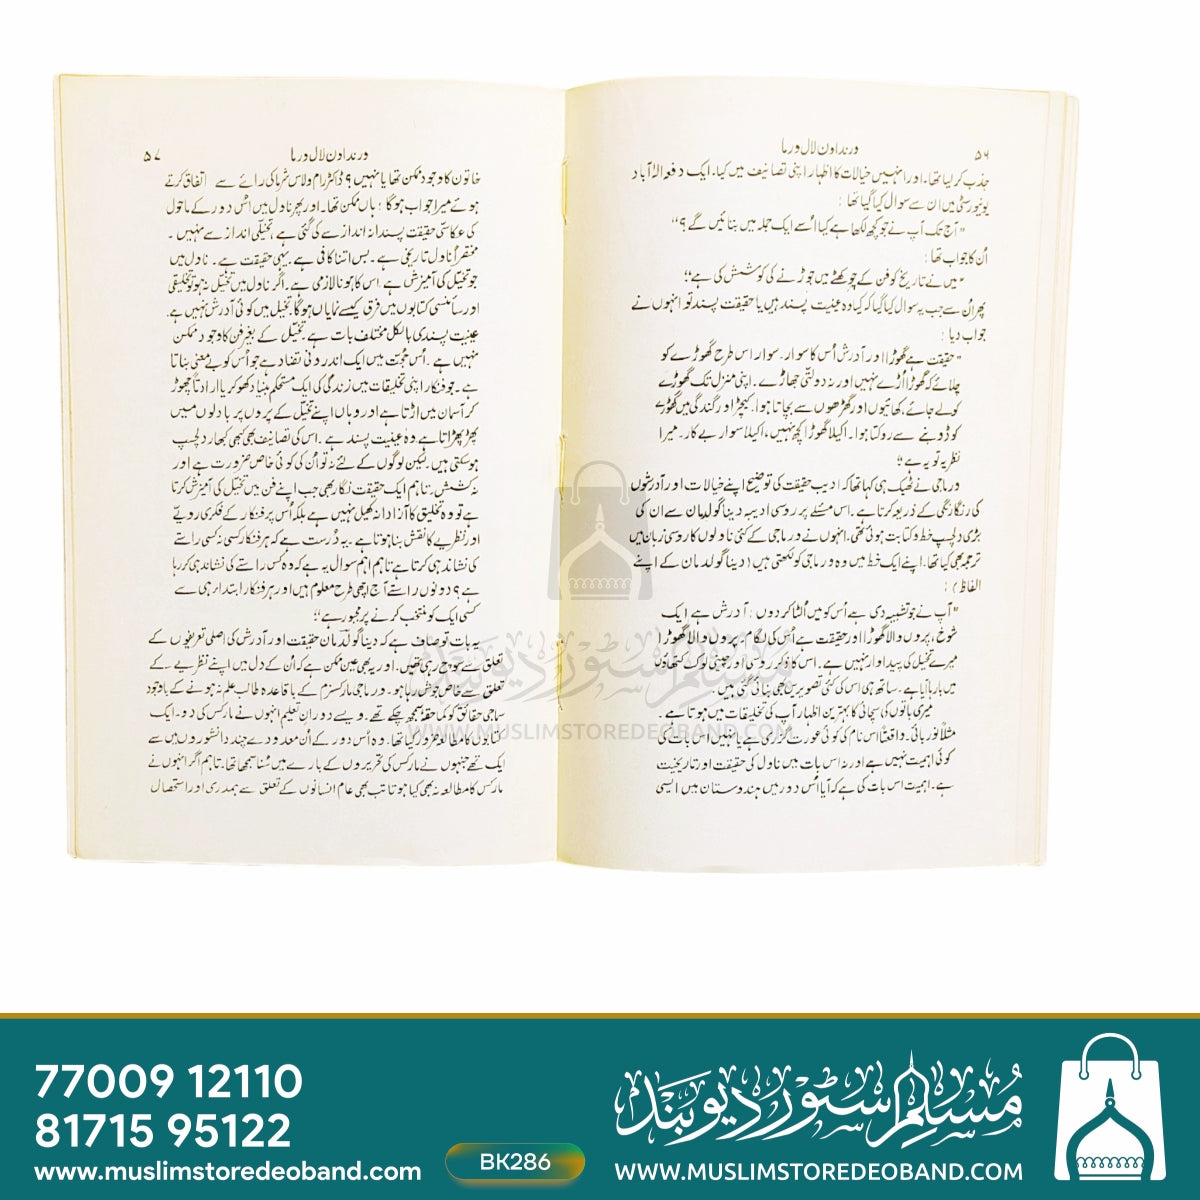 ۵۶
ورنداون لال ورما
جذب کر لیا تھا۔ اور انہیں خیالات کا اظہار اپنی تصانیف میں کیا۔ ایک دفعہ الٰہ آباد
یونیورسٹی میں ان سے سوال کیا گیا تھا :
"آج تک آپ نے جو کچھ لکھا ہے کیا اُسے ایک جملہ میں بتائیں گے ؟"
اُن کا جواب تھا :
"میں نے تاریخ کو فن کے چوکھٹے میں جوڑنے کی کوشش کی ہے"
پھر اُن سے جب یہ سوال کیا گیا کہ کیا وہ عینیت پسند ہیں یا حقیقت پسند تو انہوں نے
جواب دیا :
"حقیقت ہے گھوڑا اور آدرش اُس کا سوار۔ سوار اس طرح گھوڑے کو
چلائے کہ گھوڑا اُڑے نہیں اور نہ دولتی جھاڑے۔ اپنی منزل تک گھوڑے
کو لے جائے، کھائیوں اور گڑھوں سے بچاتا ہوا۔ کیچڑ اور گندگی میں گھوڑے
کو ڈوبنے سے روکتا ہوا۔ اکیلا گھوڑا کچھ نہیں، اکیلا سوار بے کار۔ میرا
نظریہ تو یہ ہے"
ورما جی نے ٹھیک ہی کہا تھا کہ ادیب حقیقت کی توضیح اپنے خیالات اور آدرشوں
کی رنگارنگی کے ذریعہ کرتا ہے۔ اس مسئلے پر روسی ادیبہ دینا گولدمان سے ان کی
بڑی دلچسپ خط و کتابت ہوئی تھی۔ انہوں نے ورما جی کے کئی ناولوں کا روسی زبان میں
ترجمہ بھی کیا تھا۔ اپنے ایک خط میں وہ ورما جی کو لکھتی ہیں (دینا گولدمان کے اپنے
الفاظ) :
"آپ نے جو تشبیہ دی ہے اُس کو میں اُلٹا کر دوں : آدرش ہے ایک
شوخ، پروں والا گھوڑا اور حقیقت ہے اُس کی لگام۔ پروں والا گھوڑا
میرے تخیل کی پیداوار نہیں ہے۔ اس کا ذکر روسی اور چینی لوک کتھاؤں
میں بارہا آیا ہے۔ ساتھ ہی اس کی کئی تصویریں بھی بنائی گئی ہیں۔
میری باتوں کی سچائی کا بہترین اظہار آپ کی تخلیقات میں ہوتا ہے۔
مثلاً نور بائی۔ واقعتاً اس نام کی کوئی عورت گزری ہے یا نہیں اس بات کی
کوئی اہمیت نہیں ہے اور نہ اس بات میں ناول کی حقیقت اور تاریخیت
ہے۔ اہمیت اس بات کی ہے کہ آیا اُس دور میں ہندوستان میں ایسی
ورنداون لال ورما
۵۷
خاتون کا وجود ممکن تھا یا نہیں ؟ ڈاکٹر رام ولاس شرما کی رائے سے اتفاق کرتے
ہوئے میرا جواب ہوگا : ہاں ممکن تھا۔ اور پھر ناول میں اُس دور کے ماحول
کی عکاسی حقیقت پسندانہ انداز سے کی گئی ہے، تخیلی انداز سے نہیں۔
مختصراً ناول تاریخی ہے۔ بس اتنا کافی ہے۔ یہی حقیقت ہے۔ ناول میں
جو تخیل کی آمیزش ہے اس کا ہونا لازمی ہے۔ اگر ناول میں تخیل نہ ہو تو تخلیقی
اور سائنسی کتابوں میں فرق کیسے نمایاں ہوگا۔ تخیل میں کوئی آدرش نہیں ہے۔
عینیت پسندی بالکل مختلف بات ہے۔ تخیل کے بغیر فن کا وجود ممکن
نہیں ہے۔ اُس حجت میں ایک اندرونی تضاد ہے جو اُس کو بے معنی بناتا
ہے۔ جو فنکار اپنی تخلیقات میں زندگی کی ایک مستحکم بنیاد کھو کر یا ارادتاً چھوڑ
کر آسمان میں اڑتا ہے اور وہاں اپنے تخیل کے پروں پر بادلوں میں
پھڑپھڑاتا ہے وہ عینیت پسند ہے۔ اس کی تصانیف بھی کبھی کبھار دلچسپ
ہو سکتی ہیں۔ لیکن لوگوں کے لئے نہ تو اُن کی کوئی خاص ضرورت ہے اور
نہ کشش۔ تاہم ایک حقیقت نگار بھی جب اپنے فن میں تخیل کی آمیزش کرتا
ہے تو وہ تخلیق کا آزادانہ کھیل نہیں ہے بلکہ اُس پر فنکار کے فکری رویّے
اور نظریے کا نقش بنا ہوتا ہے۔ یہ دُرست ہے کہ ہر فنکار کسی نہ کسی راستے
کی نشاندہی کرتا ہے تاہم اہم سوال یہ ہے کہ وہ کس راستے کی نشاندہی کر رہا
ہے ؟ دونوں راستے آج اچھی طرح معلوم ہیں اور ہر فنکار ابتدا ہی سے
کسی ایک کو منتخب کرنے پر مجبور ہے"
یہ بات تو صاف ہے کہ دینا گولدمان حقیقت اور آدرش کی اصلی تعریفوں کے
تعلق سے سوچ رہی تھیں۔ اور یہ بھی عین ممکن ہے کہ اُن کے دل میں اپنے نظریے کے
تعلق سے خاص جوش رہا ہو۔ ورما جی مارکسزم کے باقاعدہ طالب علم نہ ہونے کے باوجود
سماجی حقائق کو کماحقہٗ سمجھ چکے تھے۔ ویسے دورانِ تعلیم انہوں نے مارکس کی دو۔ ایک
کتابوں کا مطالعہ ضرور کیا تھا۔ وہ اُس دور کے اُن معدودے چند دانشوروں میں سے
ایک تھے جنہوں نے مارکس کی تحریروں کے بارے میں سُنا سمجھا تھا۔ تاہم اگر انہوں نے
مارکس کا مطالعہ نہ بھی کیا ہوتا تب بھی عام انسانوں کے تعلق سے ہمدردی اور استحصال
مسلم سٹور دیوبند
WWW.MUSLIMSTOREDEOBAND.COM
77009 12110
81715 95122
www.muslimstoredeoband.com
BK286
مسلم سٹور دیوبند
WWW.MUSLIMSTOREDEOBAND.COM